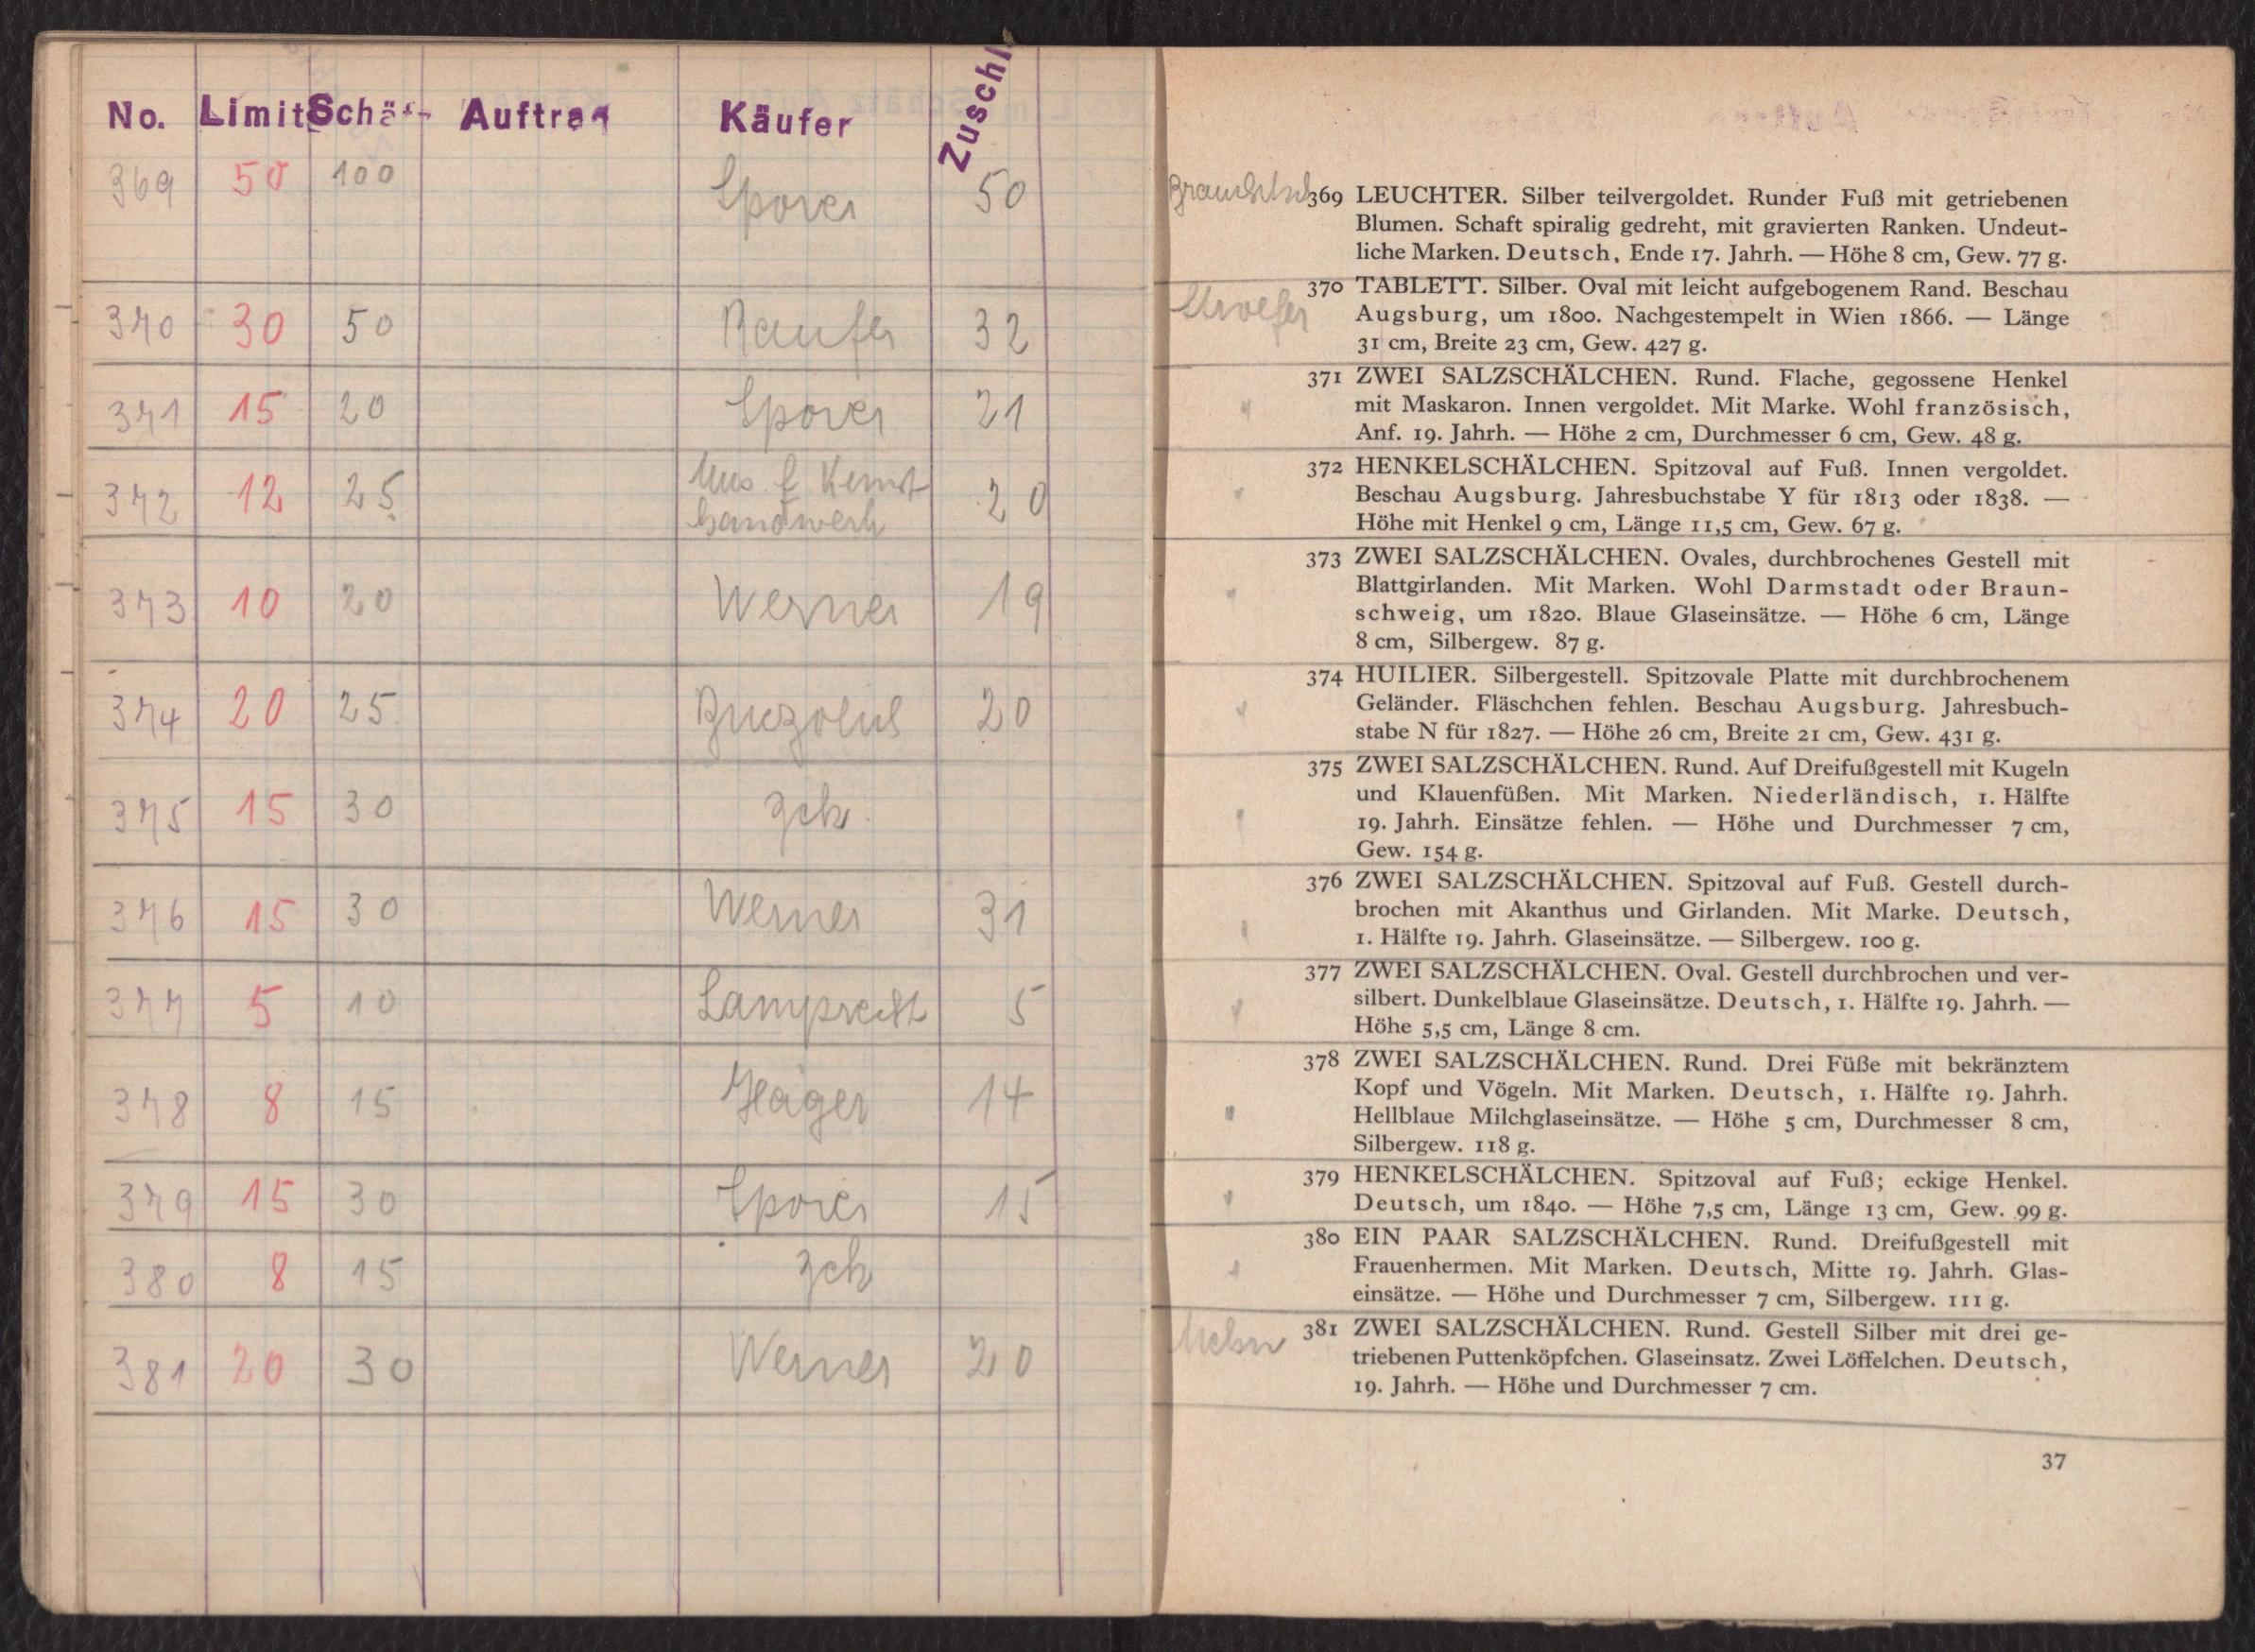 No. Limit Schä Auftrag Käufer Zuschl
369 50 100 Sporer 50
370 30 50 32
371 15 20 Sporer 21
372 12 25 Mus f Kunst
handwerk 20
373 10 20 Werner 19
374 20 25 20
375 15 30 zck
376 15 30 Werner 31
377 5 10 Lamprecht 5
378 8 15 Häger 14
379 15 30 Sporer 15
380 8 15 zck
381 20 30 Werner 20
369 LEUCHTER. Silber teilvergoldet. Runder Fuß mit getriebenen
Blumen. Schaft spiralig gedreht, mit gravierten Ranken. Undeut-
liche Marken. Deutsch, Ende 17. Jahrh. — Höhe 8 cm, Gew. 77 g.
370 TABLETT. Silber. Oval mit leicht aufgebogenem Rand. Beschau
Augsburg, um 1800. Nachgestempelt in Wien 1866. — Länge
31 cm, Breite 23 cm, Gew. 427 g.
371 ZWEI SALZSCHÄLCHEN. Rund. Flache, gegossene Henkel
mit Maskaron. Innen vergoldet. Mit Marke. Wohl französisch,
Anf. 19. Jahrh. — Höhe 2 cm, Durchmesser 6 cm, Gew. 48 g.
372 HENKELSCHÄLCHEN. Spitzoval auf Fuß. Innen vergoldet.
Beschau Augsburg. Jahresbuchstabe Y für 1813 oder 1838. —
Höhe mit Henkel 9 cm, Länge 11,5 cm, Gew. 67 g.
373 ZWEI SALZSCHÄLCHEN. Ovales, durchbrochenes Gestell mit
Blattgirlanden. Mit Marken. Wohl Darmstadt oder Braun-
schweig, um 1820. Blaue Glaseinsätze. — Höhe 6 cm, Länge
8 cm, Silbergew. 87 g.
374 HUILIER. Silbergestell. Spitzovale Platte mit durchbrochenem
Geländer. Fläschchen fehlen. Beschau Augsburg. Jahresbuch-
stabe N für 1827. — Höhe 26 cm, Breite 21 cm, Gew. 431 g.
375 ZWEI SALZSCHÄLCHEN. Rund. Auf Dreifußgestell mit Kugeln
und Klauenfüßen. Mit Marken. Niederländisch, 1. Hälfte
19. Jahrh. Einsätze fehlen. — Höhe und Durchmesser 7 cm,
Gew. 154 g.
376 ZWEI SALZSCHÄLCHEN. Spitzoval auf Fuß. Gestell durch-
brochen mit Akanthus und Girlanden. Mit Marke. Deutsch,
1. Hälfte 19. Jahrh. Glaseinsätze. — Silbergew. 100 g.
377 ZWEI SALZSCHÄLCHEN. Oval. Gestell durchbrochen und ver-
silbert. Dunkelblaue Glaseinsätze. Deutsch, 1. Hälfte 19. Jahrh. —
Höhe 5,5 cm, Länge 8 cm.
378 ZWEI SALZSCHÄLCHEN. Rund. Drei Füße mit bekränztem
Kopf und Vögeln. Mit Marken. Deutsch, 1. Hälfte 19. Jahrh.
Hellblaue Milchglaseinsätze. — Höhe 5 cm, Durchmesser 8 cm,
Silbergew. 118 g.
379 HENKELSCHÄLCHEN. Spitzoval auf Fuß; eckige Henkel.
Deutsch, um 1840. — Höhe 7,5 cm, Länge 13 cm, Gew. 99 g.
380 EIN PAAR SALZSCHÄLCHEN. Rund. Dreifußgestell mit
Frauenhermen. Mit Marken. Deutsch, Mitte 19. Jahrh. Glas-
einsätze. — Höhe und Durchmesser 7 cm, Silbergew. 111 g.
381 ZWEI SALZSCHÄLCHEN. Rund. Gestell Silber mit drei ge-
triebenen Puttenköpfchen. Glaseinsatz. Zwei Löffelchen. Deutsch,
19. Jahrh. — Höhe und Durchmesser 7 cm.
37